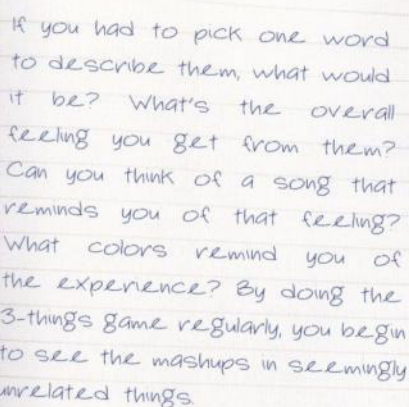 If you had to pick one word
to describe them, what would
it be? What's the overall
feeling you get from them?
Can you think of a song that
reminds you of that feeling?
What colors remind you of
the experience? By doing the
3-things game regularly, you begin
to see the mashups in seemingly
unrelated things.